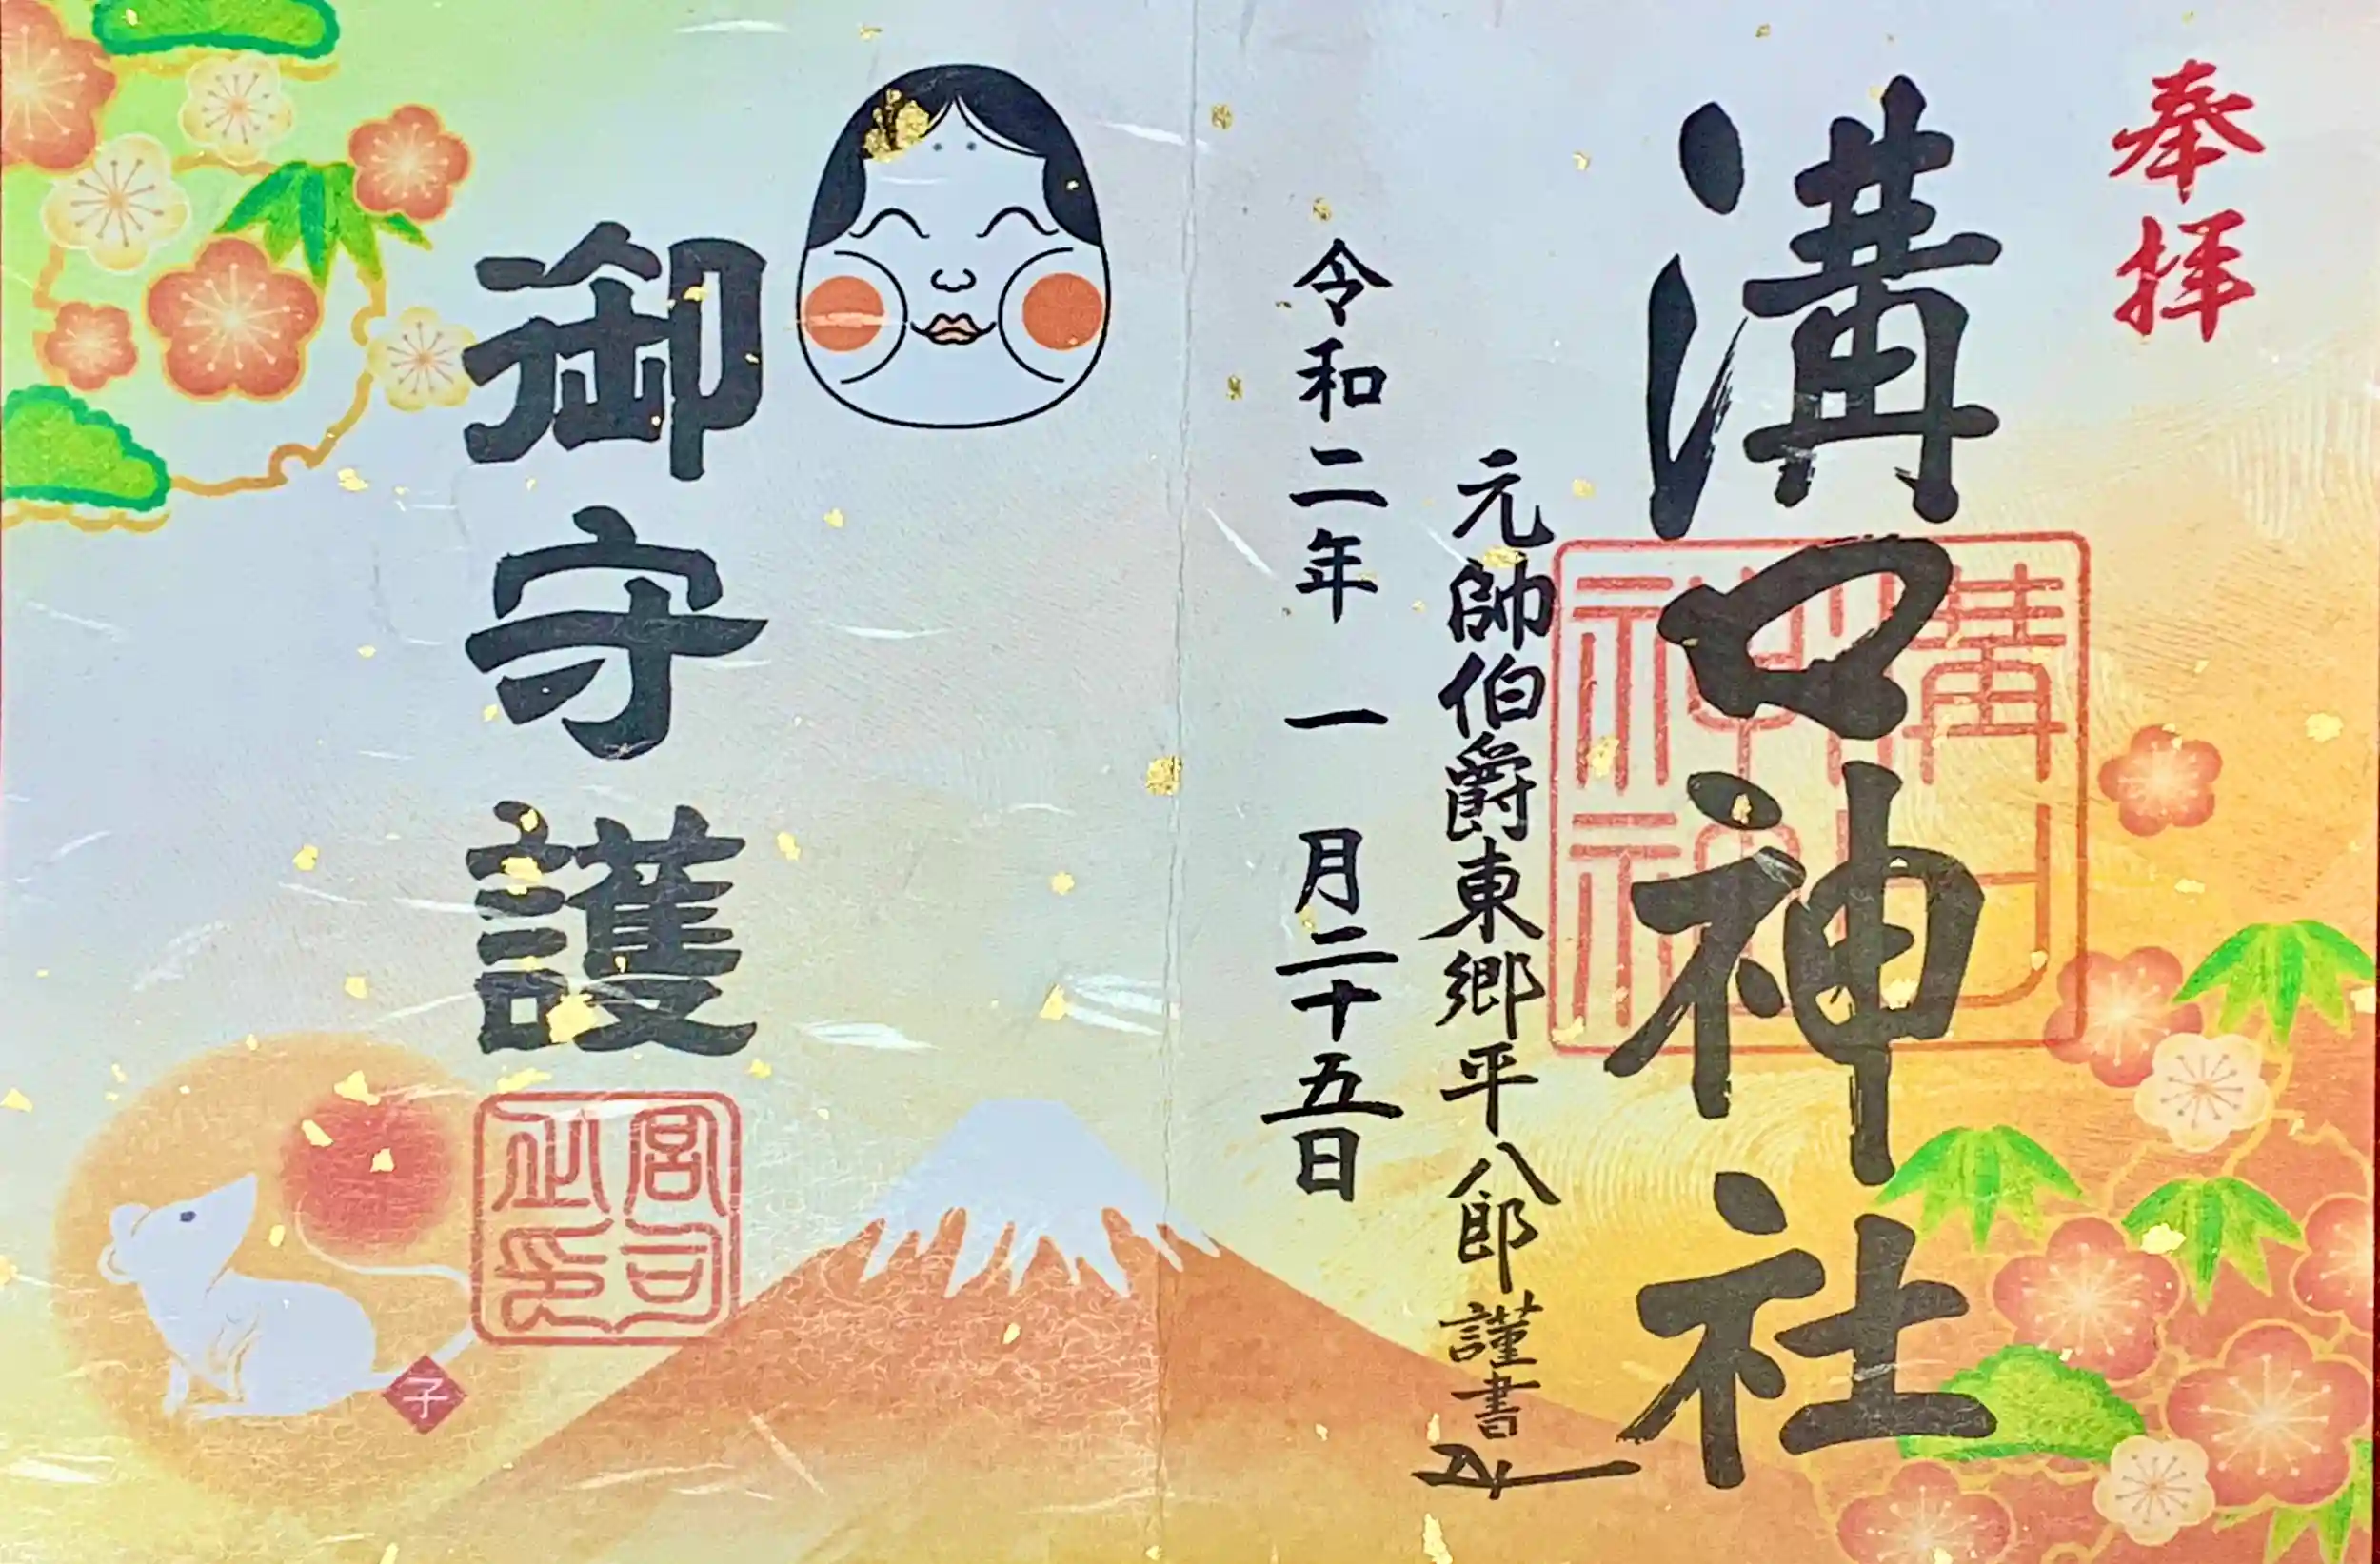 奉拝
溝口神社
溝口神社
元帥伯爵東郷平八郎謹書
令和二年一月二十五日
御守護
宮司之印
子